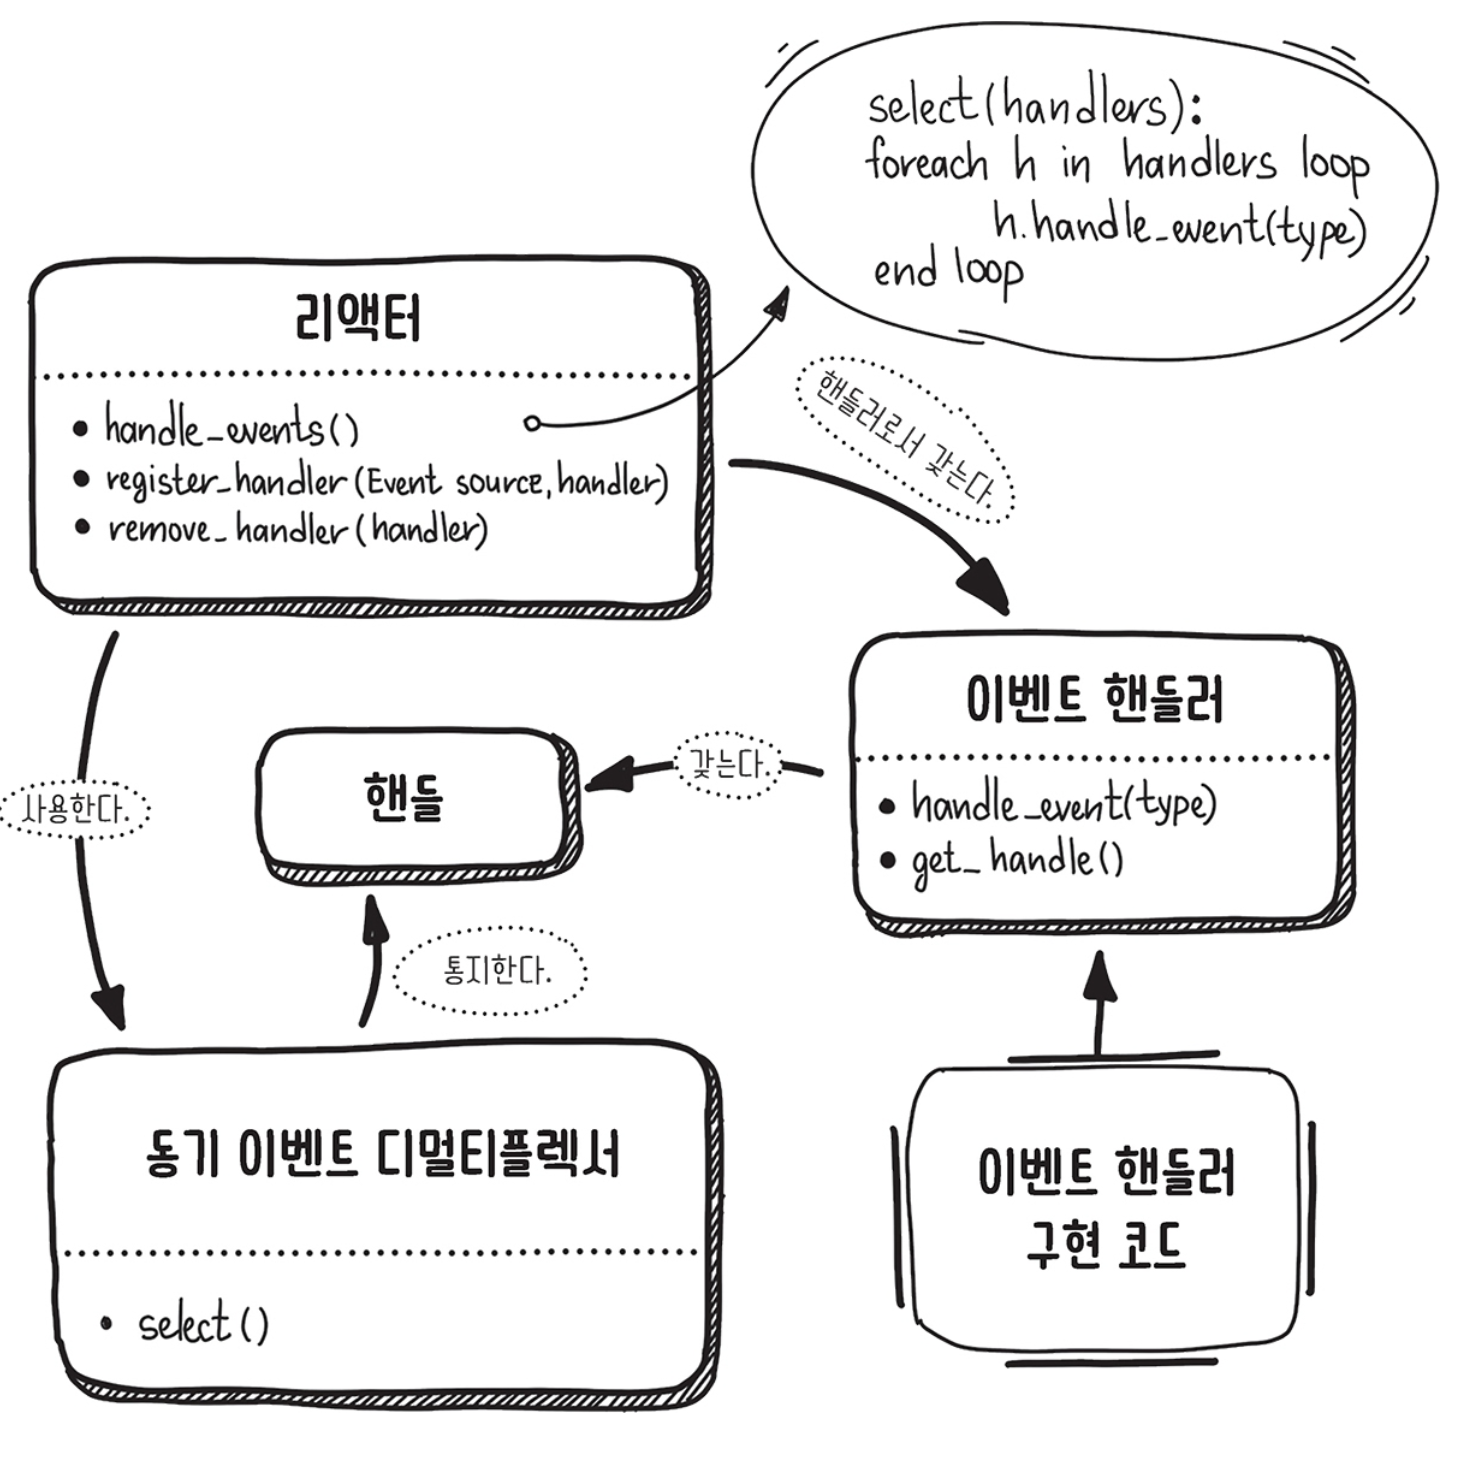 select(handlers):
foreach h in handlers loop
h.handle_event(type)
end loop
리액터
• handle_events()
• register_handler(Event source, handler)
• remove_handler(handler)
핸들러로서 갖는다.
이벤트 핸들러
• handle_event(type)
• get_handle()
핸들
갖는다.
사용한다.
통지한다.
동기 이벤트 디멀티플렉서
• select()
이벤트 핸들러
구현 코드